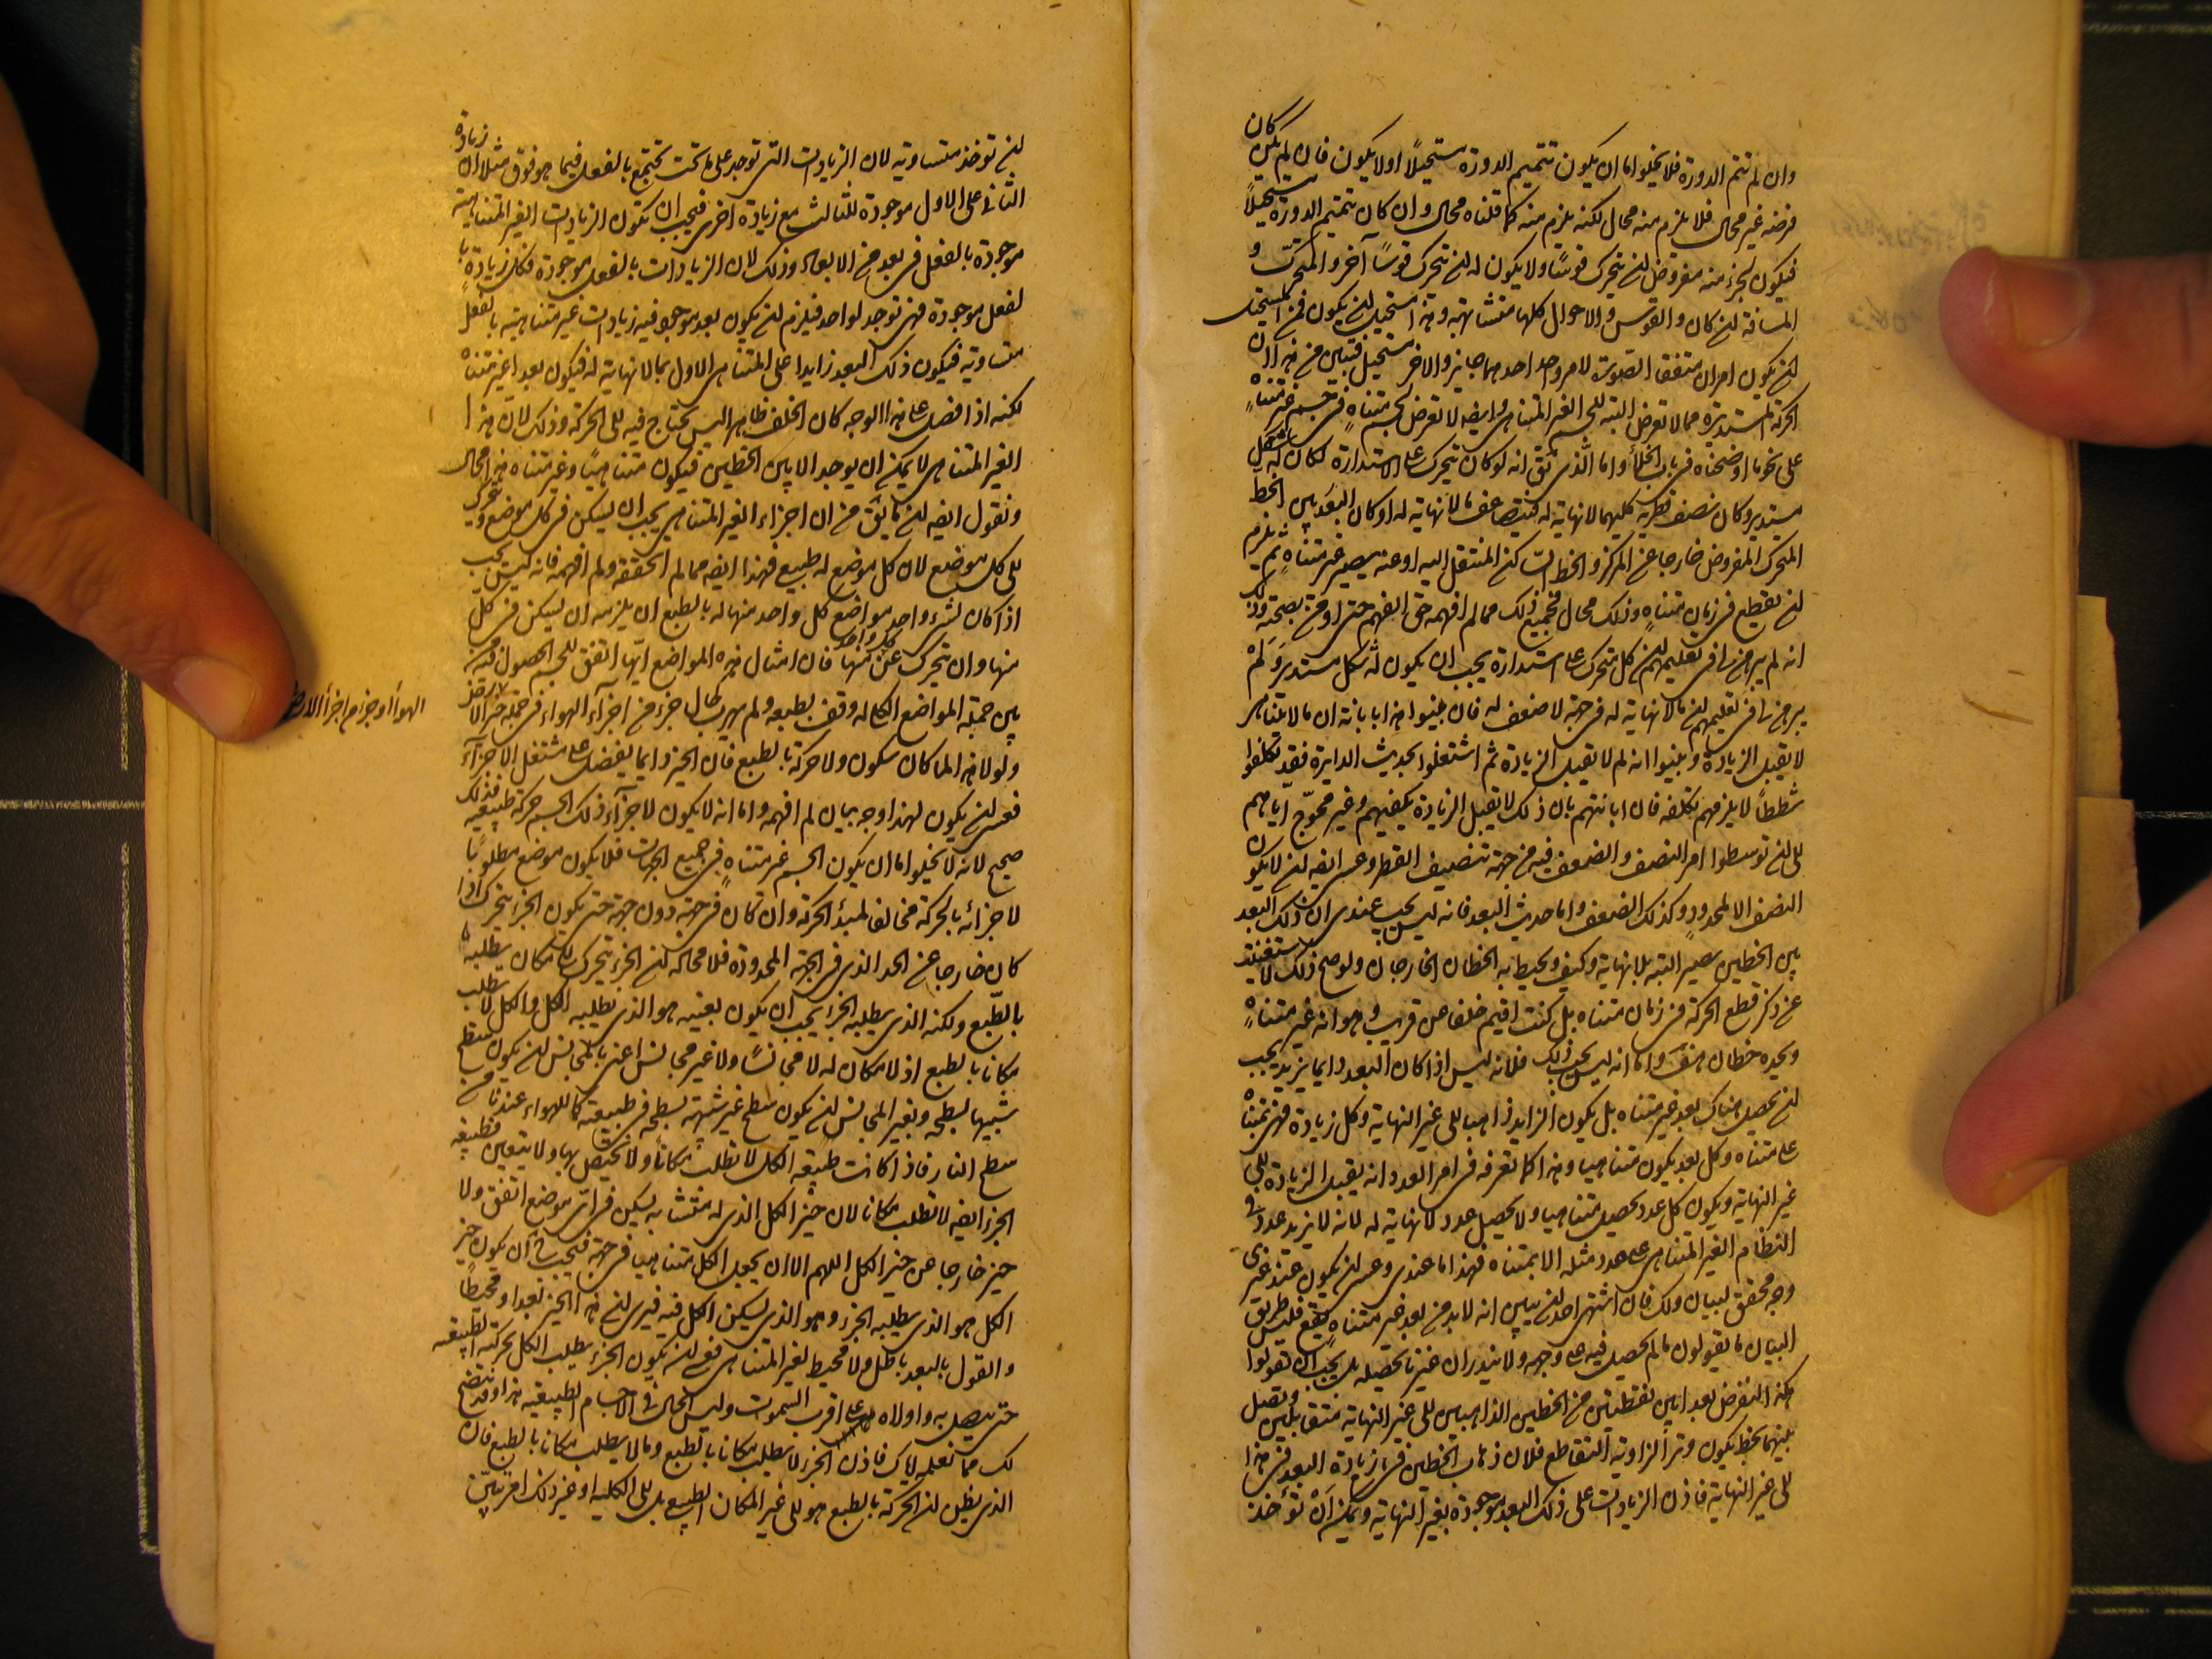 وان لم تتم الدورة فلا يخلوا اما ان يكون تتميم الدورة مستحيلًا اولا يكون فان لم يكن كان
فرضه غير محال فلا يلزم منه محال لكنه يلزم منه كما قلناه محال وان كان تتميم الدورة مستحيلًا
فيكون لجزء منه مفروض ان يتحرك قوسًا ولا يكون له ان يتحرك قوسًا آخر والمتحرك و
المسافة ان كان والقوس والاحوال كلها متشابهة وهذا مستحيل ان يكون فمن المستحيل
ان يكون امران متفقا الصورة لامر واحد احدهما جايز والاخر مستحيل فتبين من هذا ان
الحركة المستديرة مما لا تعرض البتة للجسم الغير المتناهي وايضه لا تعرض لجسم متناهٍ في جسم غير متناهٍ
على نحو ما اوضحناه في باب الخلأ واما الذي يق انه لو كان يتحرك على الاستدارة لكان له شكل
مستدير وكان نصف قطريه كليهما لا نهاية له فيتضاعف ما لا نهاية له او كان البعد بين الخط
المتحرك المفروض خارجا عن المركز والخط الساكن المنتقل اليه او عنه يصير غير متناهٍ ثم يلزم
ان يقطع في زمان متناهٍ وذلك محال فجميع ذلك مما لم افهمه حق الفهم حتى اومن بصحته وذلك
انه لم يبرهن في تعليمهم ان كل متحرك على استدارة يجب ان يكون له شكل مستدير ولم
يبرهن في تعليمهم ان ما لا نهاية له في جهة لا ضعف له فان بينوا هذا بابانة ان ما لا يتناهى
لا يقبل الزيادة وبينوا انه لم لا يقبل الزيادة ثم اشتغلوا بحديث الدايرة فقد تكلفوا
شططًا لا يلزمهم تكلفه فان ابانتهم بان ذلك لا يقبل الزيادة يكفيهم وغير محوج اياهم
الى ان توسطوا امر النصف والضعف فيه من جهة تنصيف القطر وعسى ايضه ان لا يكون
النصف الا لمحدود وكذلك الضعف واما حديث البعد فانه ليس يجب عندي ان ذلك البعد
بين الخطين يصير البتة بلا نهاية وكيف ويحيط به الخطان الخارجان ولو صح ذلك لاستغنيت
عن ذكر قطع الحركة في زمان متناه بل كنت اقيم خلفا عن قريب وهو انه غير متناهٍ
ويحده خطان هف واما انه ليس يجب ذلك فلانه ليس اذا كان البعد دايما يزيد يجب
ان يحصل هناك بعد غير متناه بل يكون الزايد ذاهبا الى غير النهاية وكل زيادة فهي بمتناه
على متناه وكل بعد يكون متناهيا وهذا كما تعرفه في امر العدد انه يقبل الزيادة الى
غير النهاية ويكون كل عدد يحصل متناهيا ولا يحصل عدد لا نهاية له لانه لا يزيد عدد في
النظام الغير المتناهي على عدد مثله الا بمتناه فهذا ما عندي وعسى ان يكون عند غيري
وجه محقق لبيان ذلك فان اشتهى احد ان يبين انه لابد من بعد غير متناه يقع فليس طريق
البيان ما يقولون ما لم يحصل فيه على وجهه ولا يندران غيرنا تحصيله بل يجب ان تقولوا
هكذا لنفرض بعدا بين نقطتين من الخطين الذاهبين الى غير النهاية متقابلين ونصل
بينهما بخط يكون وترا لزاوية التقاطع فلان ذهاب الخطين في زيادة البعد في هذا
الى غير النهاية فاذن الزيادات على ذلك البعد موجودة بغير النهاية ويمكن ان تؤخذ
ان توخذ متساوية لان الزيادات التي توجد على ما تحت تجتمع بالفعل فيما هو فوق مثلا ان زيادة
الثاني على الاول موجودة للثالث مع زيادة اخرى فيجب ان تكون الزيادات الغير المتناهية
موجودة بالفعل في بعد من الابعاد وذلك لان الزيادات بالفعل موجودة فكل زيادة با
لفعل موجودة فهي توجد لواحد فيلزم ان يكون بعد موجود فيه زيادات غير متناهية بالفعل
متساوية فيكون ذلك البعد زايدا على المتناهي الاول بما لا نهاية له فيكون بعدا غير متناه
لكنه اذا افصل على هذا الوجه كان الخلف ظاهرا ليس يحتاج فيه الى الحركة وذلك لان هذا
الغير المتناهي لا يمكن ان يوجد الا بين الخطين فيكون متناهيًا وغير متناه هذا محال
ونقول ايضه ان ما يق من ان اجزاء الغير المتناهي يجب ان يسكن في كل موضع ويتحرك
الى كل موضع لان كل موضع له طبيعي فهذا ايضه مما لم اتحققه ولم افهمه فانه ليس يجب
اذا كان لشيء واحد مواضع كل واحد منها له بالطبع ان يلزمه ان يسكن في كل
منها وان يتحرك عن كل واحد منها فان امثال هذه المواضع ايها اتفق للجسم الحصول فيه من
بين جملة المواضع التي له وقف بطبعه ولم يهرب كحال جزء من اجزاء الهواء في جملة حيز
الهواء او جزء من اجزاء الارض
ولولا هذا لما كان سكون ولا حركة بالطبع فان الحيز دايما يفضل على مشتغل الاجزاء
فعسى ان يكون لهذا وجه بيان لم افهمه واما انه لا يكون لاجزاء ذلك الجسم حركة طبيعية فذلك
صحيح لانه لا يخلوا اما ان يكون الجسم غير متناهٍ في جميع الجهات فلا يكون موضع مطلوبًا
لاجزائه بالحركة مخالف لمبدأ الحركة وان كان في جهة دون جهة حتى يكون الجزء يتحرك اذا
كان خارجا عن الحد الذي في الجهة المحدودة فلا محالة ان الجزء يتحرك الى مكان يطلبه
بالطبع ولكنه الذي يطلبه الجزء يجب ان يكون بعينه هو الذي يطلبه الكل والكل لا يطلب
مكانا بالطبع اذ لا مكان له لا مجانسًا ولا غير مجانس اعني بالمجانس ان يكون سطح
شبيها بسطحه وبغير المجانس ان يكون سطح غير شبيه بسطحه في طبيعته كما للهواء عندنا من
سطح النار فاذا كانت طبيعة الكل لا تطلب مكانًا ولا تختص بها ولا يتعين فطبيعة
الجزء ايضه لا تطلب مكانا لان حيز الكل الذي له متشابه يسكن في اي موضع اتفق ولا
حيز خارجا عن حيز الكل اللهم الا ان يجعل الكل متناهيا في جهة فيجب ان يكون حيز
الكل هو الذي يطلبه الجزء وهو الذي يسكن الكل فيه فيرى ان هذا الحيز بعدا ومحيطًا
والقول بالبعد باطل ولا محيط لغير المتناهي فعسى ان يكون الجزء يطلب الكل بحركته الطبيعية
حتى يتصل به واولاه على اقرب السموت وليس الحال في الاجسام الطبيعية هذا وقد يتضح
لك مما نعلمه فاذن الجزء لا يطلب مكانا بالطبع وما لا يطلب مكانا بالطبع فان
الذي يظن ان الحركة بالطبع هو الى غير المكان الطبيعي بل الى الكلية او غير ذلك امر يتبين